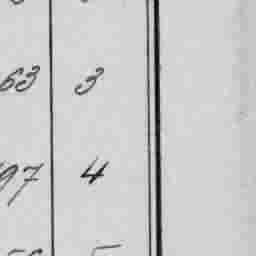 63 3
97 4